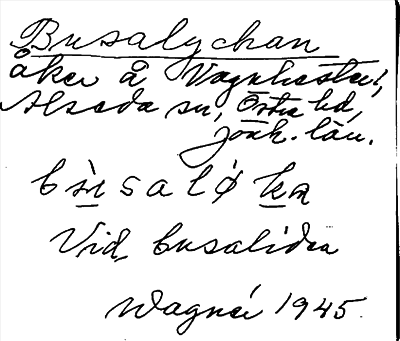 Busalychan
åker å Vagnhester,
Alseda sn, Östra hd,
Jönk. län.
bùsaløkɑ
Vid busaliden
Wagnér 1945